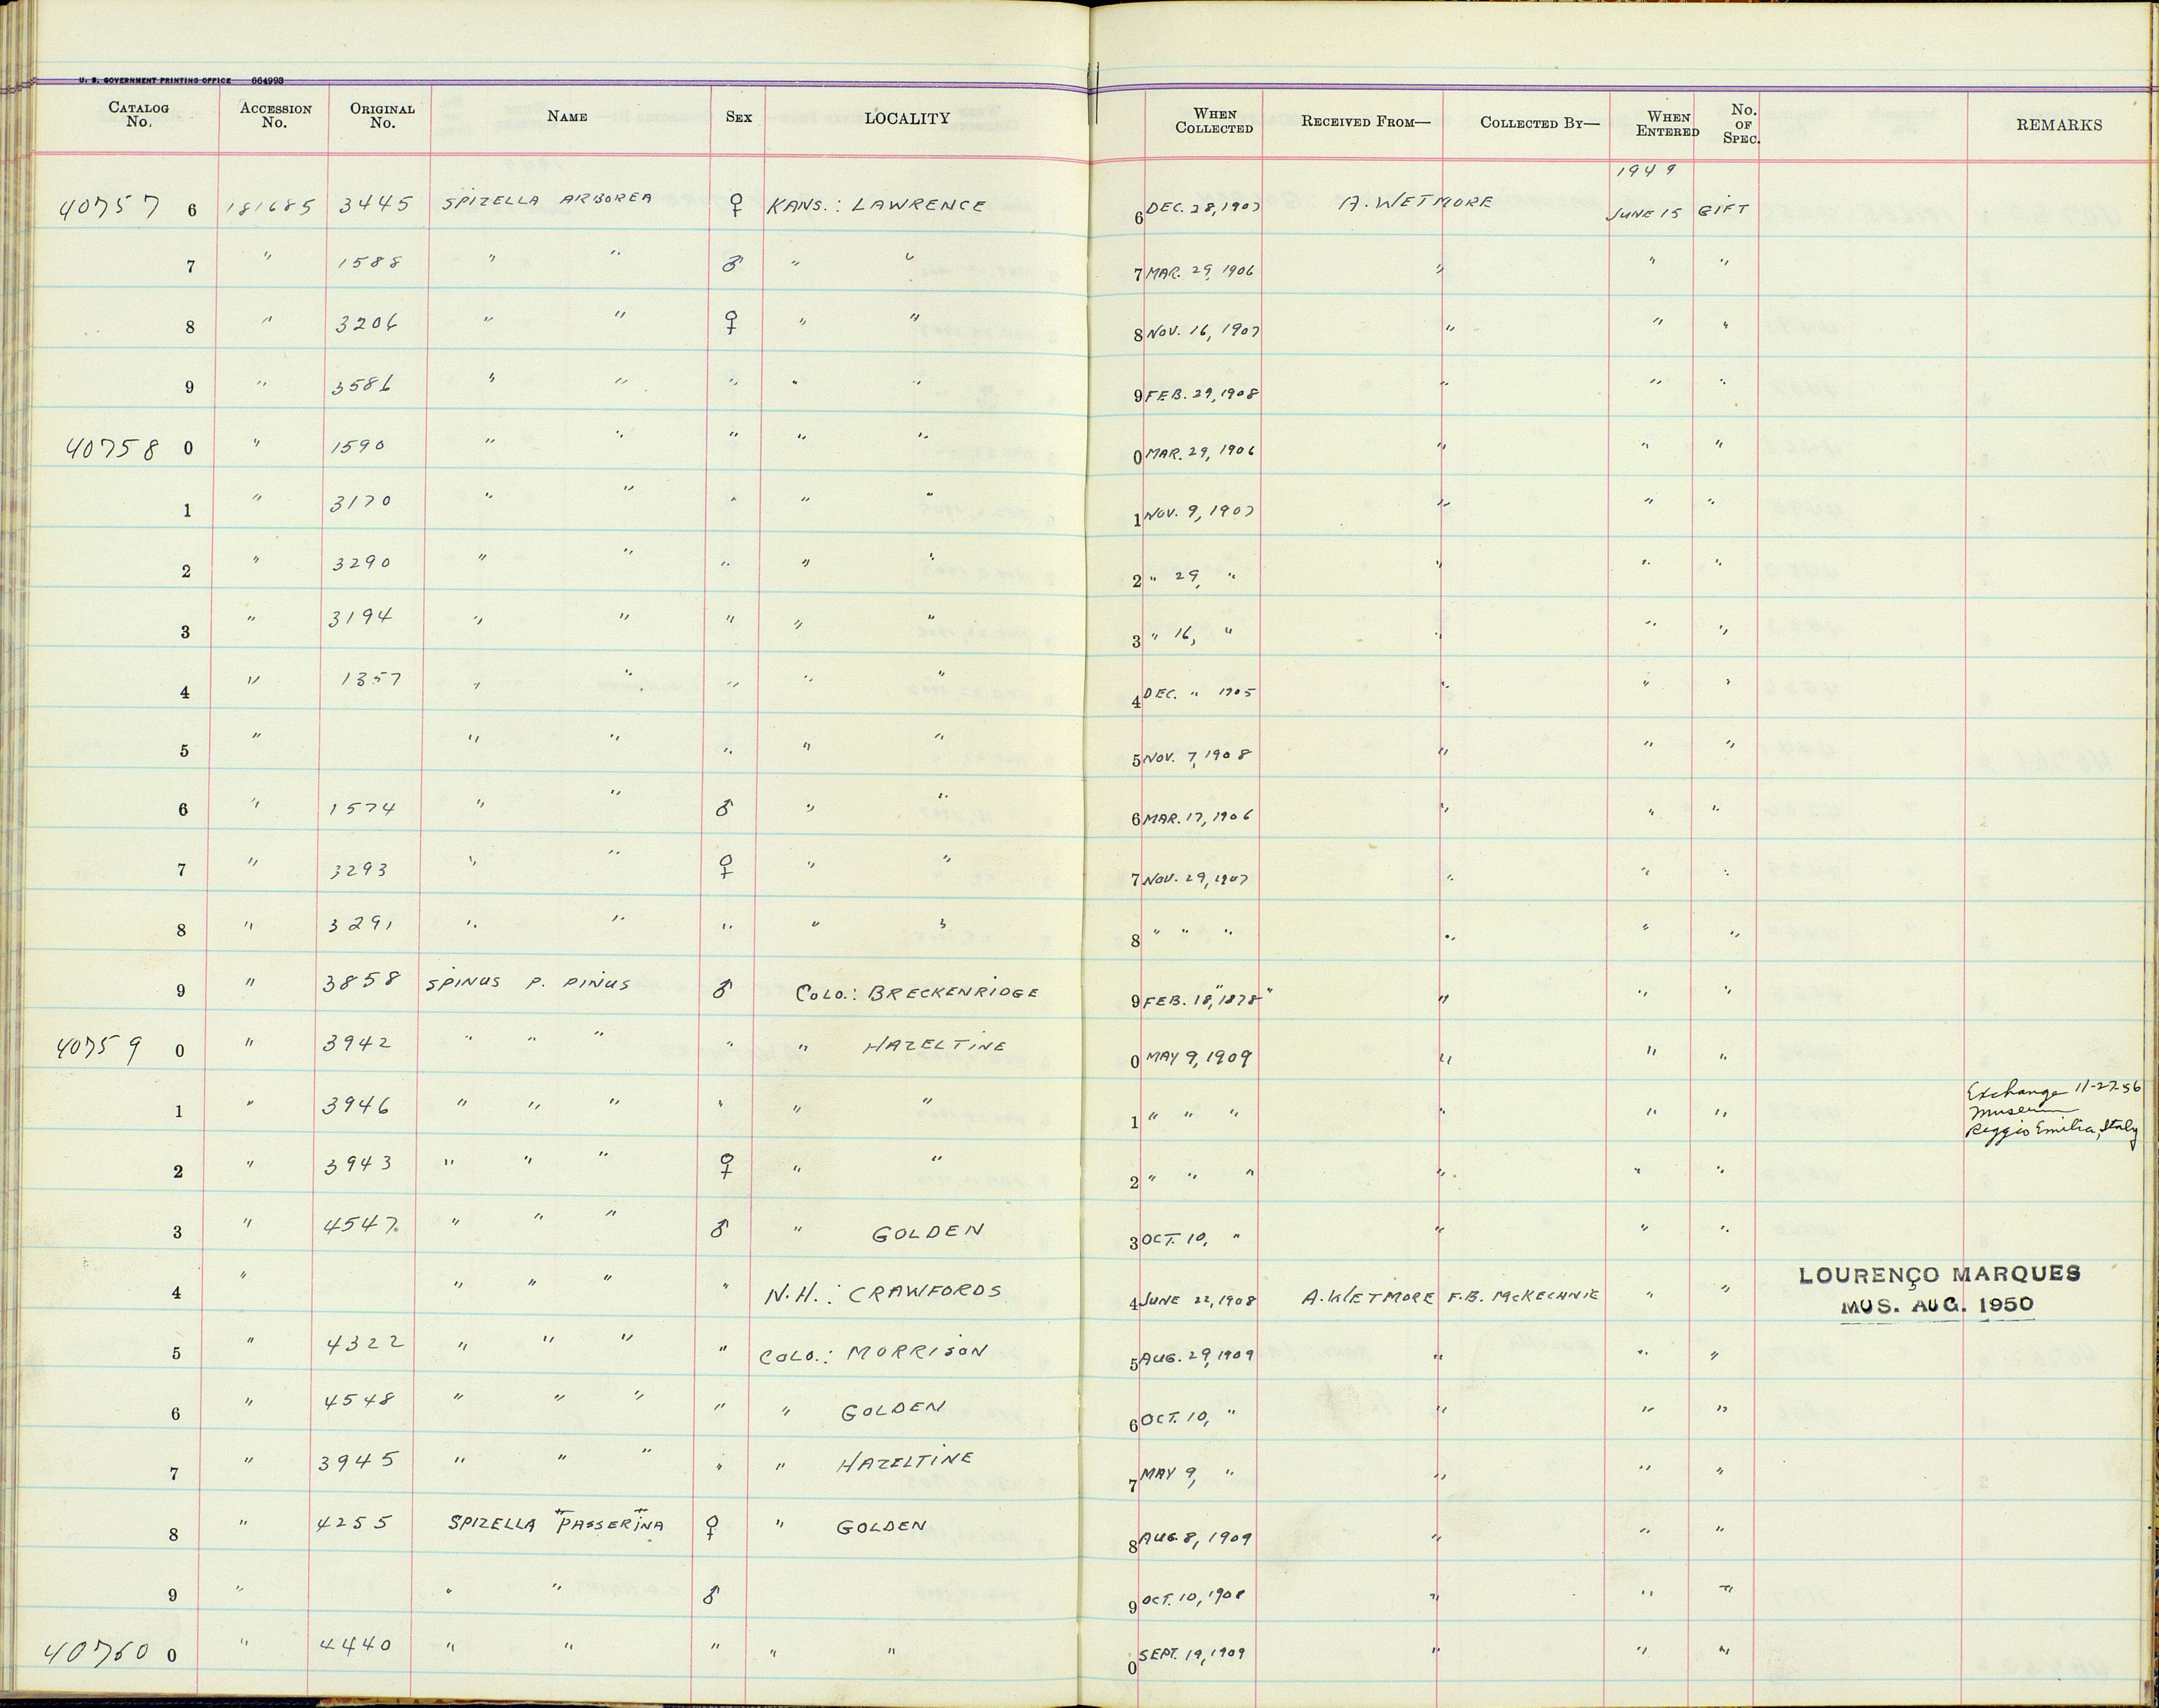 U. S. GOVERNMENT PRINTING OFFICE 664993
CATALOG No. ACCESSION No. ORIGINAL No. NAME SEX LOCALITY WHEN COLLECTED RECEIVED FROM— COLLECTED BY— WHEN ENTERED No. OF SPEC. REMARKS
1949
40757 6 181685 3445 SPIZELLA ARBOREA ♀ KANS.: LAWRENCE 6 DEC. 28, 1907 A. WETMORE JUNE 15 GIFT
7 " 1588 " " ♂ " " 7 MAR. 29, 1906 " " "
8 " 3206 " " ♀ " " 8 NOV. 16, 1907 " " "
9 " 3586 " " " " " 9 FEB. 29, 1908 " " "
40758 0 " 1590 " " " " " 0 MAR. 29, 1906 " " "
1 " 3170 " " " " " 1 NOV. 9, 1907 " " "
2 " 3290 " " " " " 2 " 29, " " " "
3 " 3194 " " " " " 3 " 16, " " " "
4 " 1357 " " " " " 4 DEC. " 1905 " " "
5 " " " " " " 5 NOV. 7, 1908 " " "
6 " 1574 " " ♂ " " 6 MAR. 17, 1906 " " "
7 " 3293 " " ♀ " " 7 NOV. 29, 1907 " " "
8 " 3291 " " " " " 8 " " " " " "
9 " 3858 SPINUS P. PINUS ♂ COLO.: BRECKENRIDGE 9 FEB. 18, "1878" " " "
40759 0 " 3942 " " " " " HAZELTINE 0 MAY 9, 1909 " " "
1 " 3946 " " " " " " 1 " " " " " " Exchange 11-27-56
Museum
Reggio Emilia, Italy
2 " 3943 " " " ♀ " " 2 " " " " " "
3 " 4547 " " " ♂ " GOLDEN 3 OCT. 10, " " " "
4 " " " " " N.H.: CRAWFORDS 4 JUNE 22, 1908 A. WETMORE F.B. McKECHNIE " " LOURENÇO MARQUES
MUS. AUG. 1950
5 " 4322 " " " " COLO.: MORRISON 5 AUG. 29, 1909 " " "
6 " 4548 " " " " " GOLDEN 6 OCT. 10, " " " "
7 " 3945 " " " " " HAZELTINE 7 MAY 9, " " " "
8 " 4255 SPIZELLA PASSERINA ♀ " GOLDEN 8 AUG. 8, 1909 " " "
9 " " " ♂ 9 OCT. 10, 1908 " " "
40760 0 " 4440 " " " " " 0 SEPT. 19, 1909 " " "